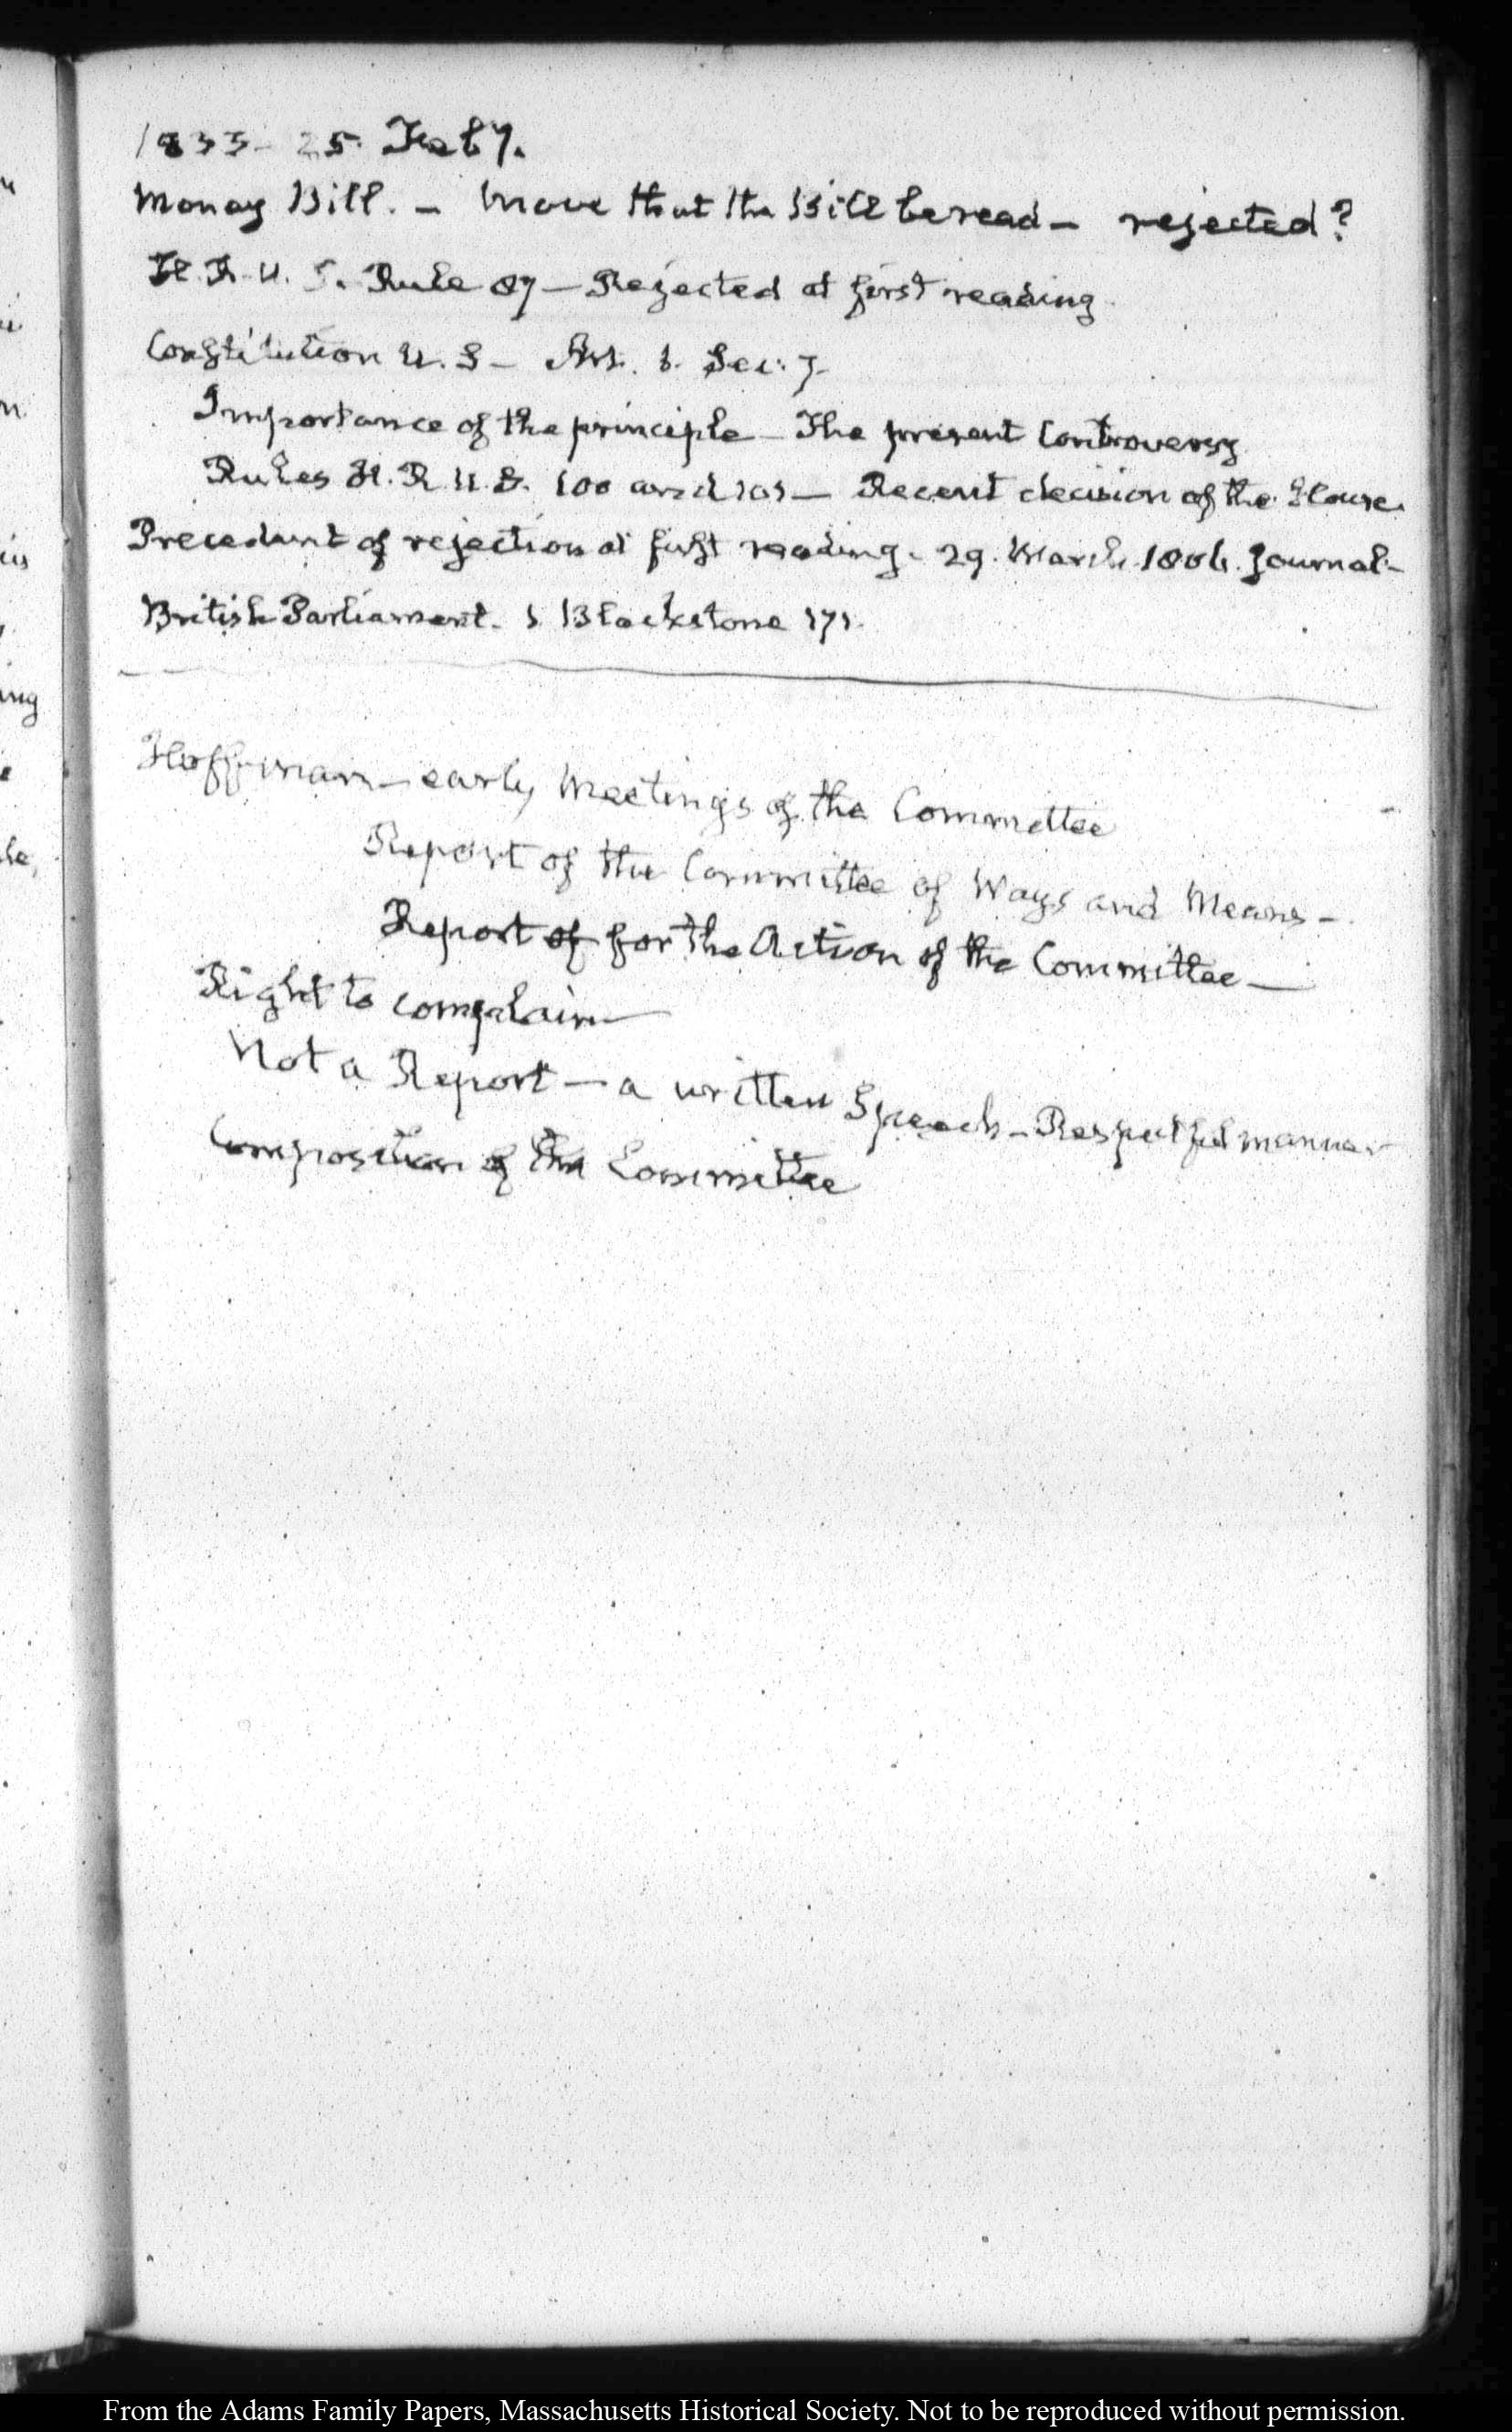 1833 - 25. Feby.
Money Bill. — Move that the Bill be read — rejected?
H. R. U. S. Rule 87 — Rejected at first reading
Constitution U. S — Art. 1. Sec: 7.
Importance of the principle — The present Controversy
Rules H. R. U. S. 100 and 101 — Recent decision of the House.
Precedent of rejection at first reading. 29. March 1806. Journal —
British Parliament. 1 Blackstone 171.
Hoffman — early Meetings of the Committee
Report of the Committee of Ways and Means —
Report of for the Action of the Committee —
Right to complain —
Not a Report — a written Speech — Respectful manner
Composition of the Committee
From the Adams Family Papers, Massachusetts Historical Society. Not to be reproduced without permission.